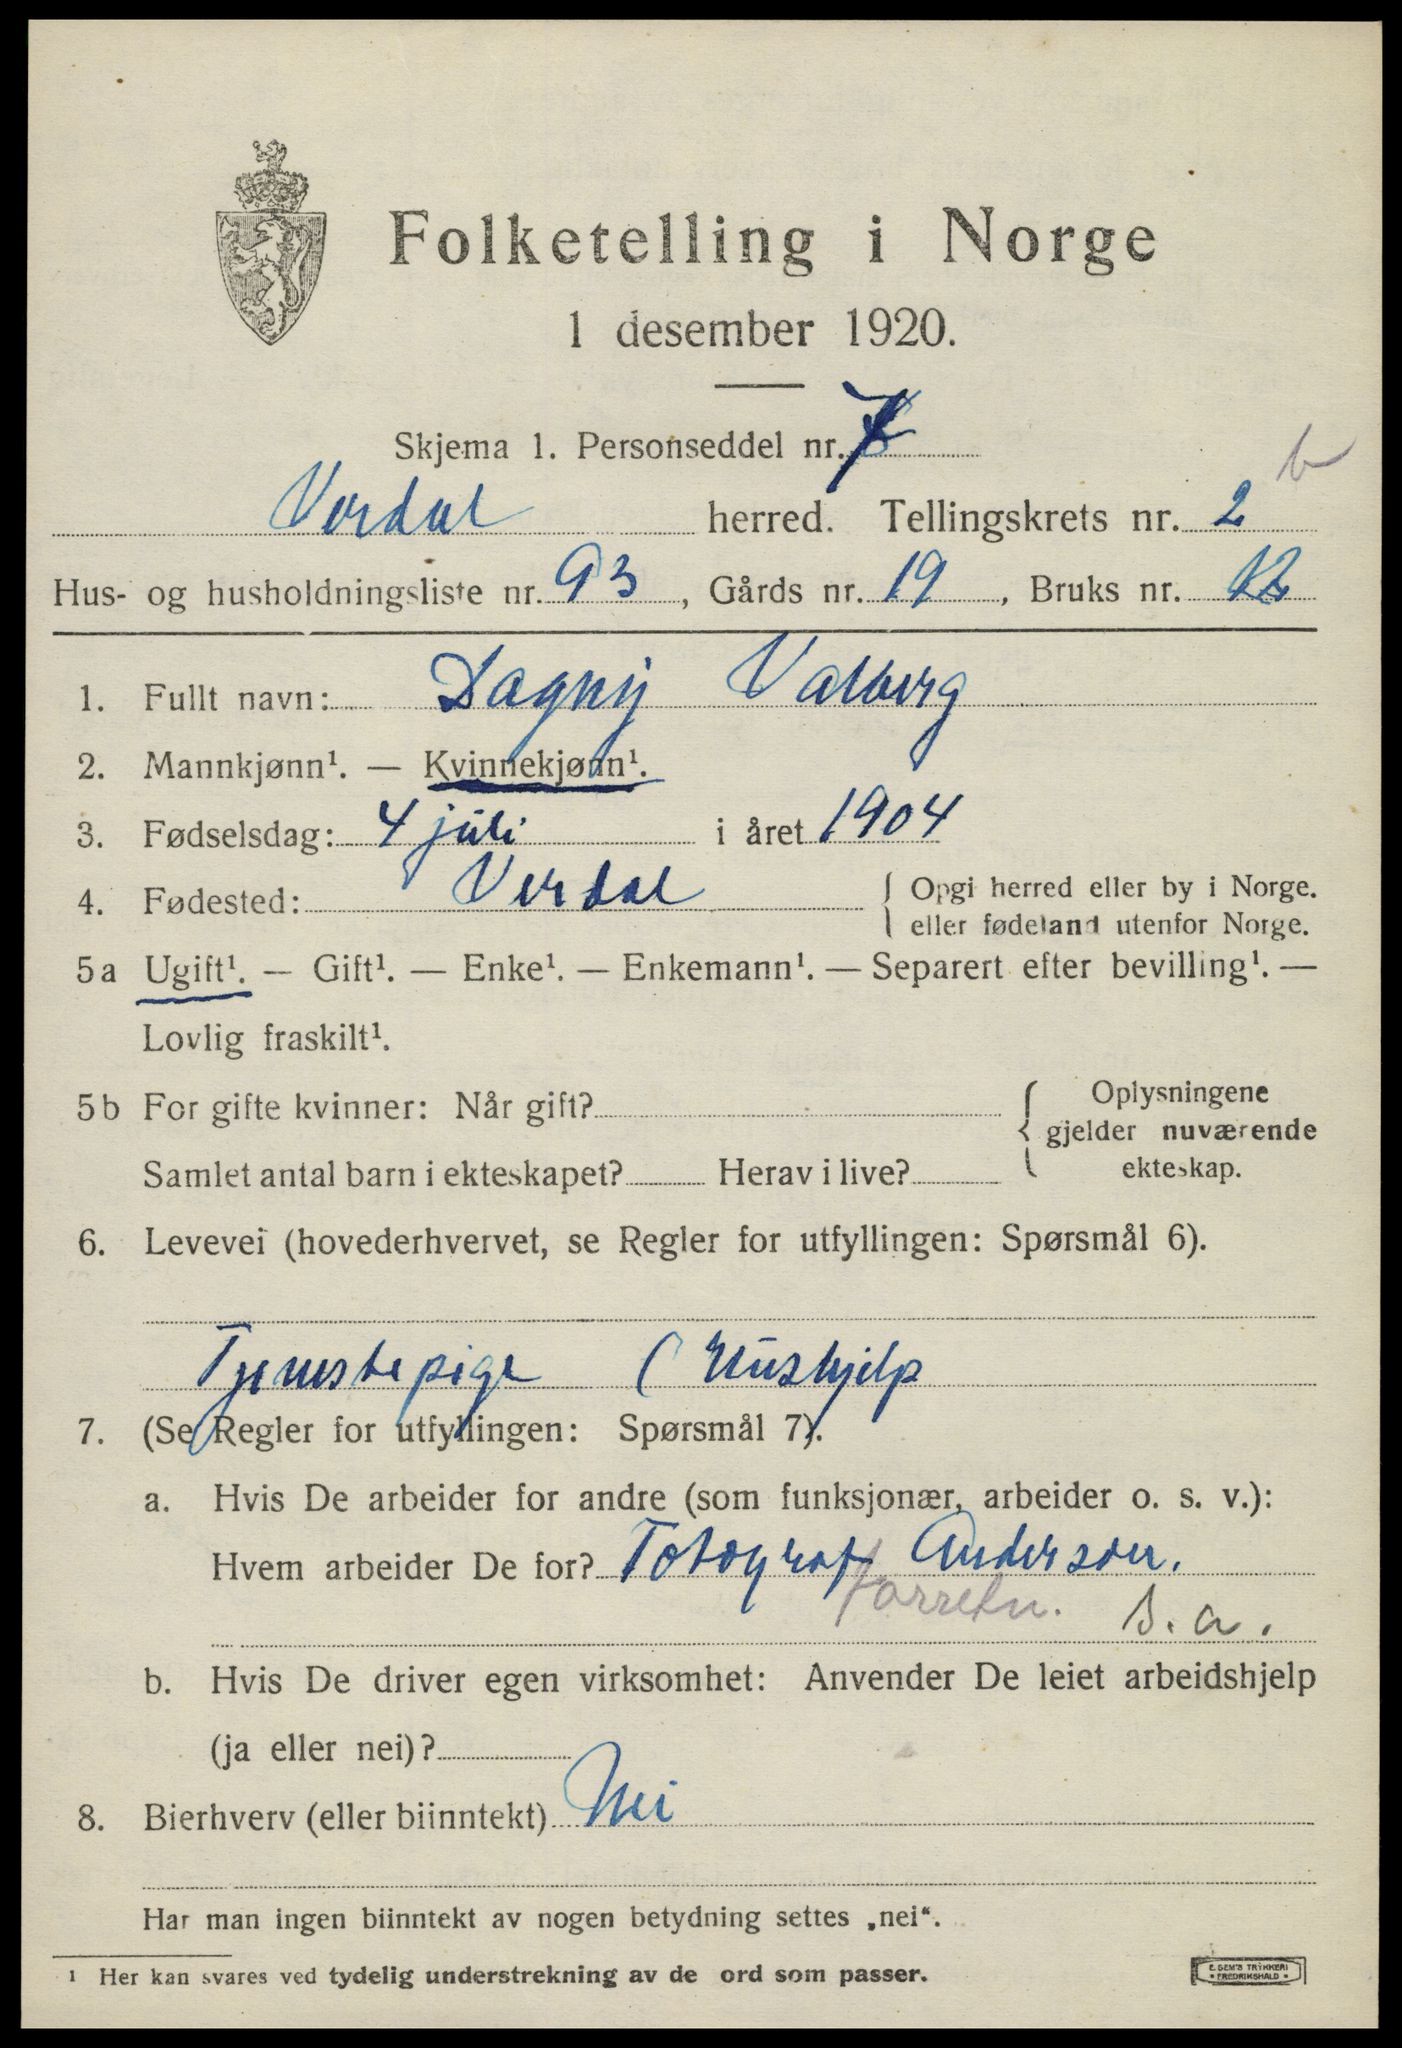 Folketelling i Norge
1 desember 1920.
Skjema 1. Personseddel nr. 7
b
Verdal herred. Tellingskrets nr. 2
Hus- og husholdningsliste nr. 93, Gårds nr. 19, Bruks nr.
1. Fullt navn: Dagny Valberg
2. Mannkjønn¹. — Kvinnekjønn¹.
3. Fødselsdag: 4 juli i året 1904
4. Fødested: Verdal { Opgi herred eller by i Norge.
eller fødeland utenfor Norge.
5a Ugift¹. — Gift¹. — Enke¹. — Enkemann¹. — Separert efter bevilling¹. —
Lovlig fraskilt¹.
5b For gifte kvinner: Når gift? { Oplysningene
gjelder nuværende
Samlet antal barn i ekteskapet? Herav i live? ekteskap.
6. Levevei (hovederhvervet, se Regler for utfyllingen: Spørsmål 6).
Tjenestepige (Hushjelp
7. (Se Regler for utfyllingen: Spørsmål 7).
a. Hvis De arbeider for andre (som funksjonær, arbeider o. s. v.):
Hvem arbeider De for? Fotograf Anderson.
forretn. s.a.
b. Hvis De driver egen virksomhet: Anvender De leiet arbeidshjelp
(ja eller nei)?
8. Bierhverv (eller biinntekt) Nei
Har man ingen biinntekt av nogen betydning settes „nei“.
¹ Her kan svares ved tydelig understrekning av de ord som passer.
E. SEM'S TRYKKERI
• FREDRIKSHALD •